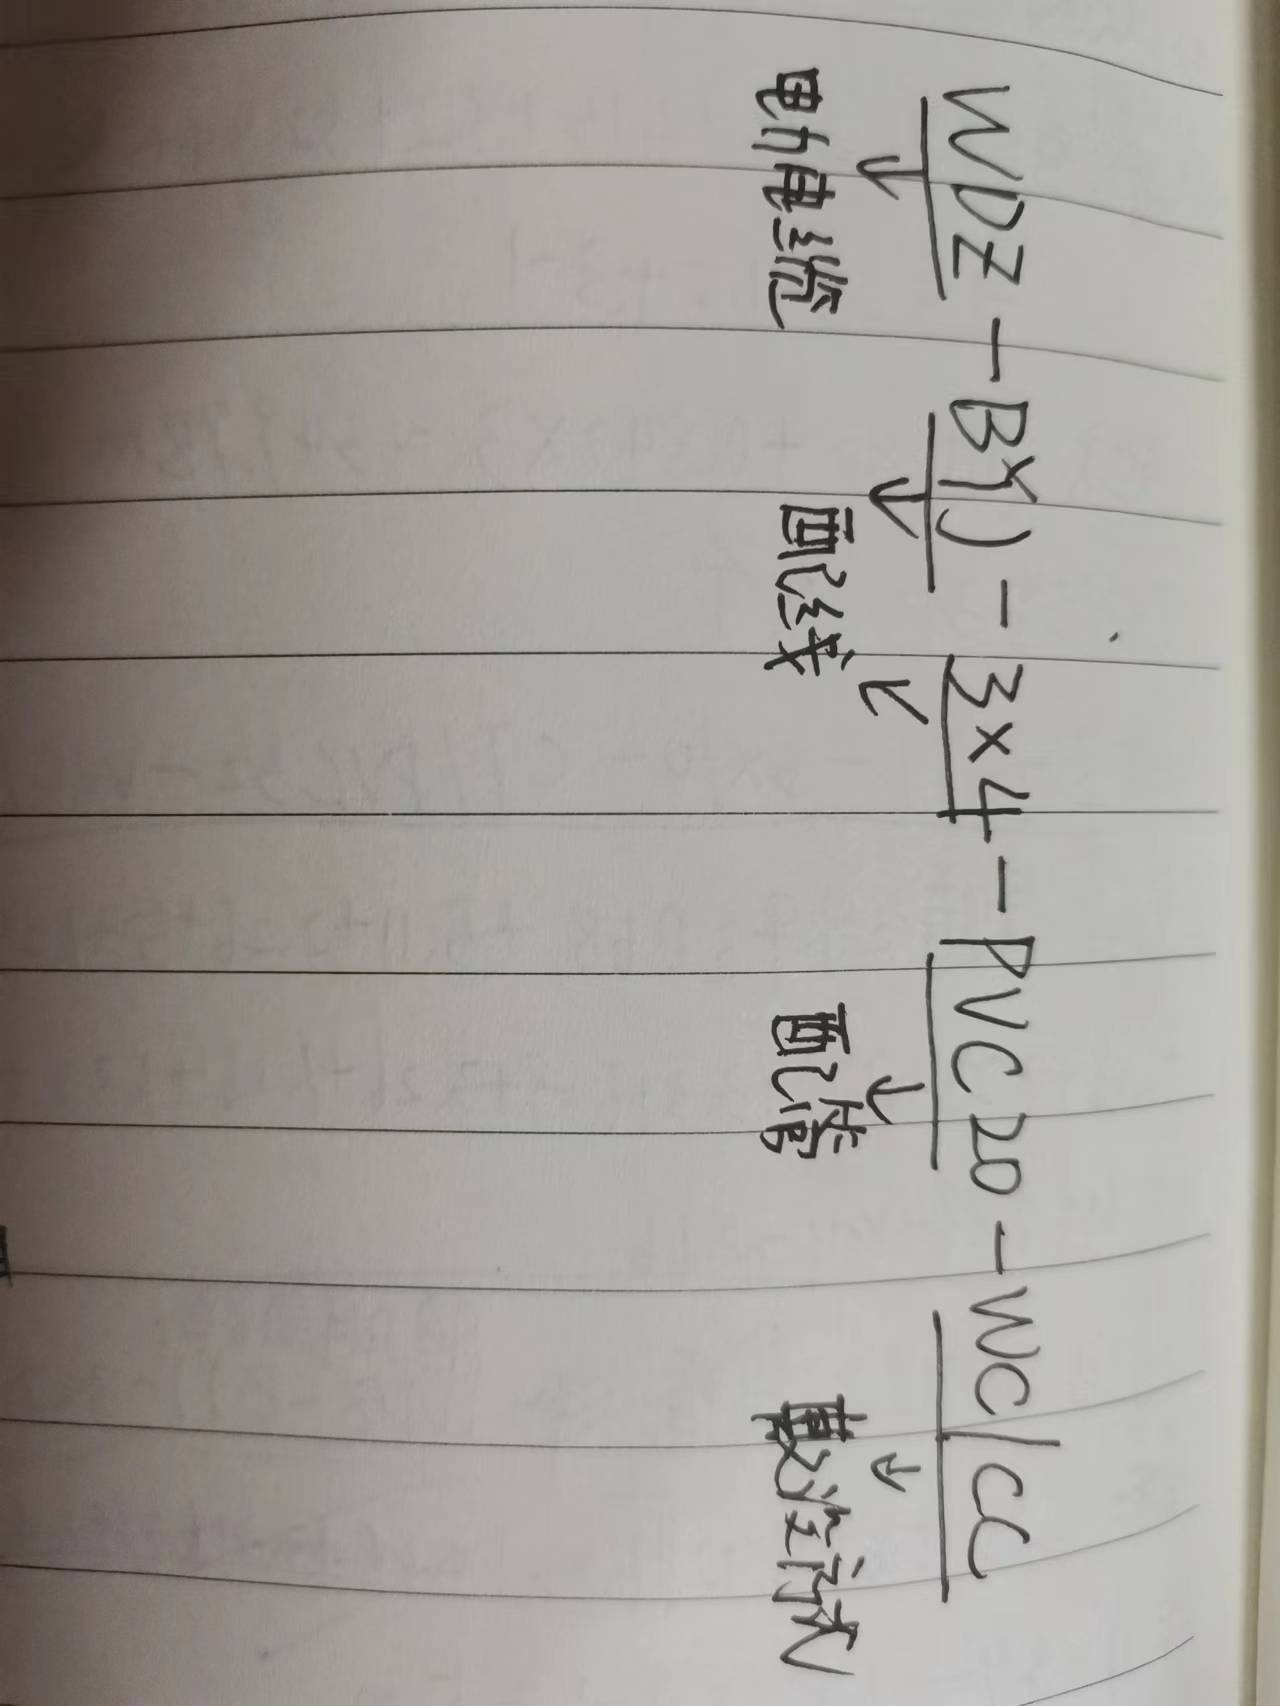 WDZ-BYJ-3×4-PVC20-WC/CC
电力电缆 配线 配管 敷设方式